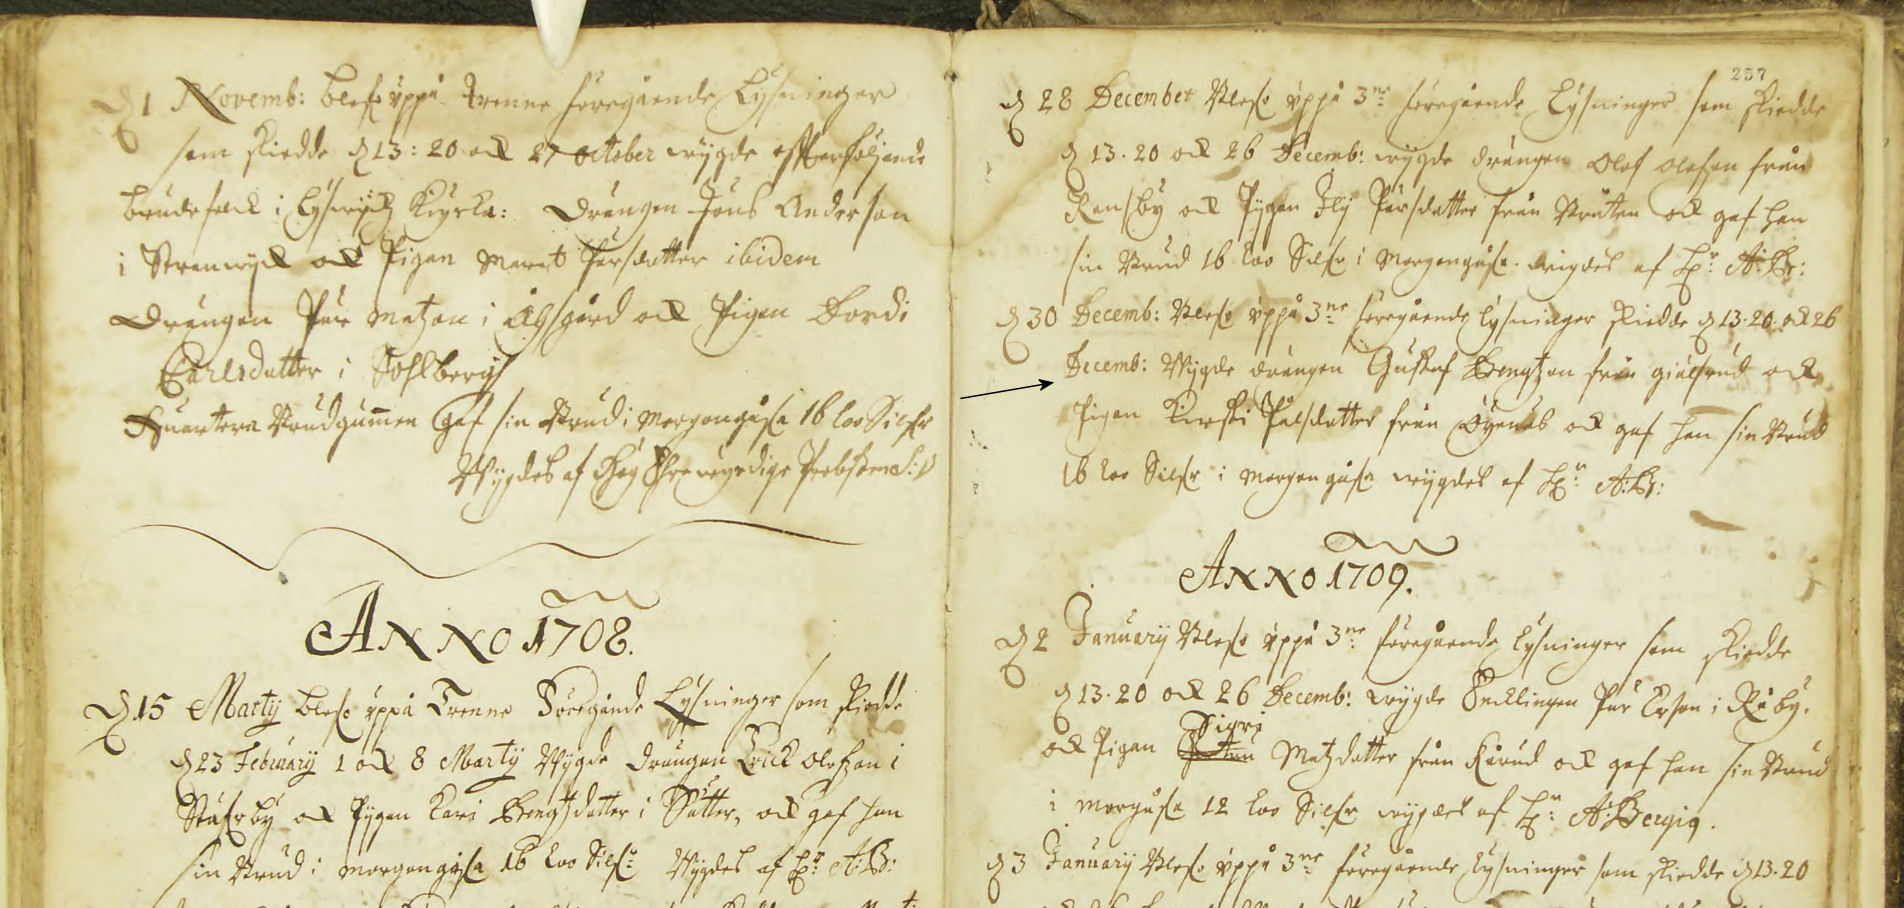 D 1 Novemb: blefo uppå trenne foregående Lysninger
som skiedde d 13: 20 och 27 october wygde effterföljande
brudefolck i Lysewyck Kiyrka: Drängen Jöns Anderson
i Strandwyck och Pigan Marit Pärsdatter ibidem
Drängen Pär Matzon i Åhsgård och Pigan Bordi
Carlsdatter i Sohlbergh
Huartera Brudgumen Gaf sin Brud i Morgongåfa 16 loo Silfr
Wygdes af Ehrewyrdige Probsten
ANNO 1708.
D. 15 Martij blefo uppå Trenne Föregånde Lysninger som skiedde
d 23 Februarij 1 och 8 Martij Wygde drängen Erick Olofzon i
Stafrby och Pygan Kari Bengtzdatter i Sätter, och gaf han
sin Brud i morgongåfa 16 loo Silfr Wygdes af Hr: A: B:
257
D 28 December Blefo uppå 3ne foregående Lysninger som skiedde
d 13. 20 och 26 Decemb: wygde drängen Olof Olofzon från
Ransby och Pygan Ily Pärsdatter från Bråten och gaf han
sin Brud 16 loo Silfr i Morgongåfa. wigdes af Hr: A: B:
D 30 Decemb: Blefo uppå 3ne foregående Lysninger skiedde d 13. 20. och 26
Decemb: Wygde drängen Gustaf Bengtzon från och
Pigan Kirsti Pålsdatter från och gaf han sin Brud
16 loo Silfr i morgongåfa wygdes af Hr: A: B:
ANNO 1709.
D 2 Januarij Blefo uppå 3ne foregående Lysninger som skiedde
d 13. 20 och 26 Decemb: wygde Encklingen Pär Erson i Råby.
Sigri
och Pigan Matzdatter från Kårud och gaf han sin Brud
i morgåfa 12 loo Silfr wygdes af Hr: A: Bergig.
D 3 Januarij Blefo uppå 3ne foregående Lysninger som skiedde d 13. 20